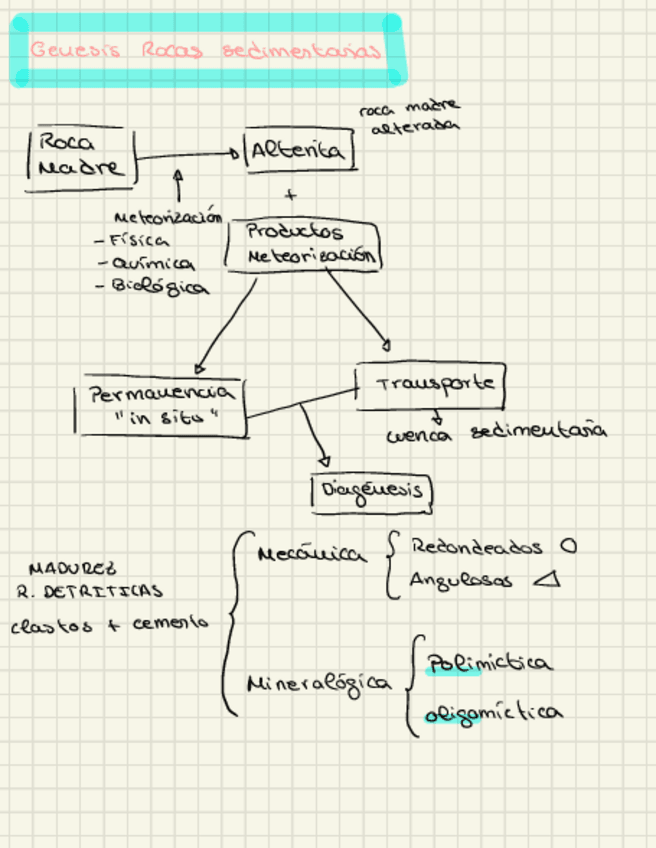 Genesis Rocas sedimentarias
roca madre
alterada
Roca
Madre
Alterita
+
Meteorización
- Física
- Química
- Biológica
Productos
Meteorización
Permanencia
"in sito"
Transporte
cuenca sedimentaria
Diagénesis
MADUREZ
R. DETRITICAS
clastos + cemento
Mecánica
Redondeados
Angulosos
Mineralógica
Polimictica
oligomíctica